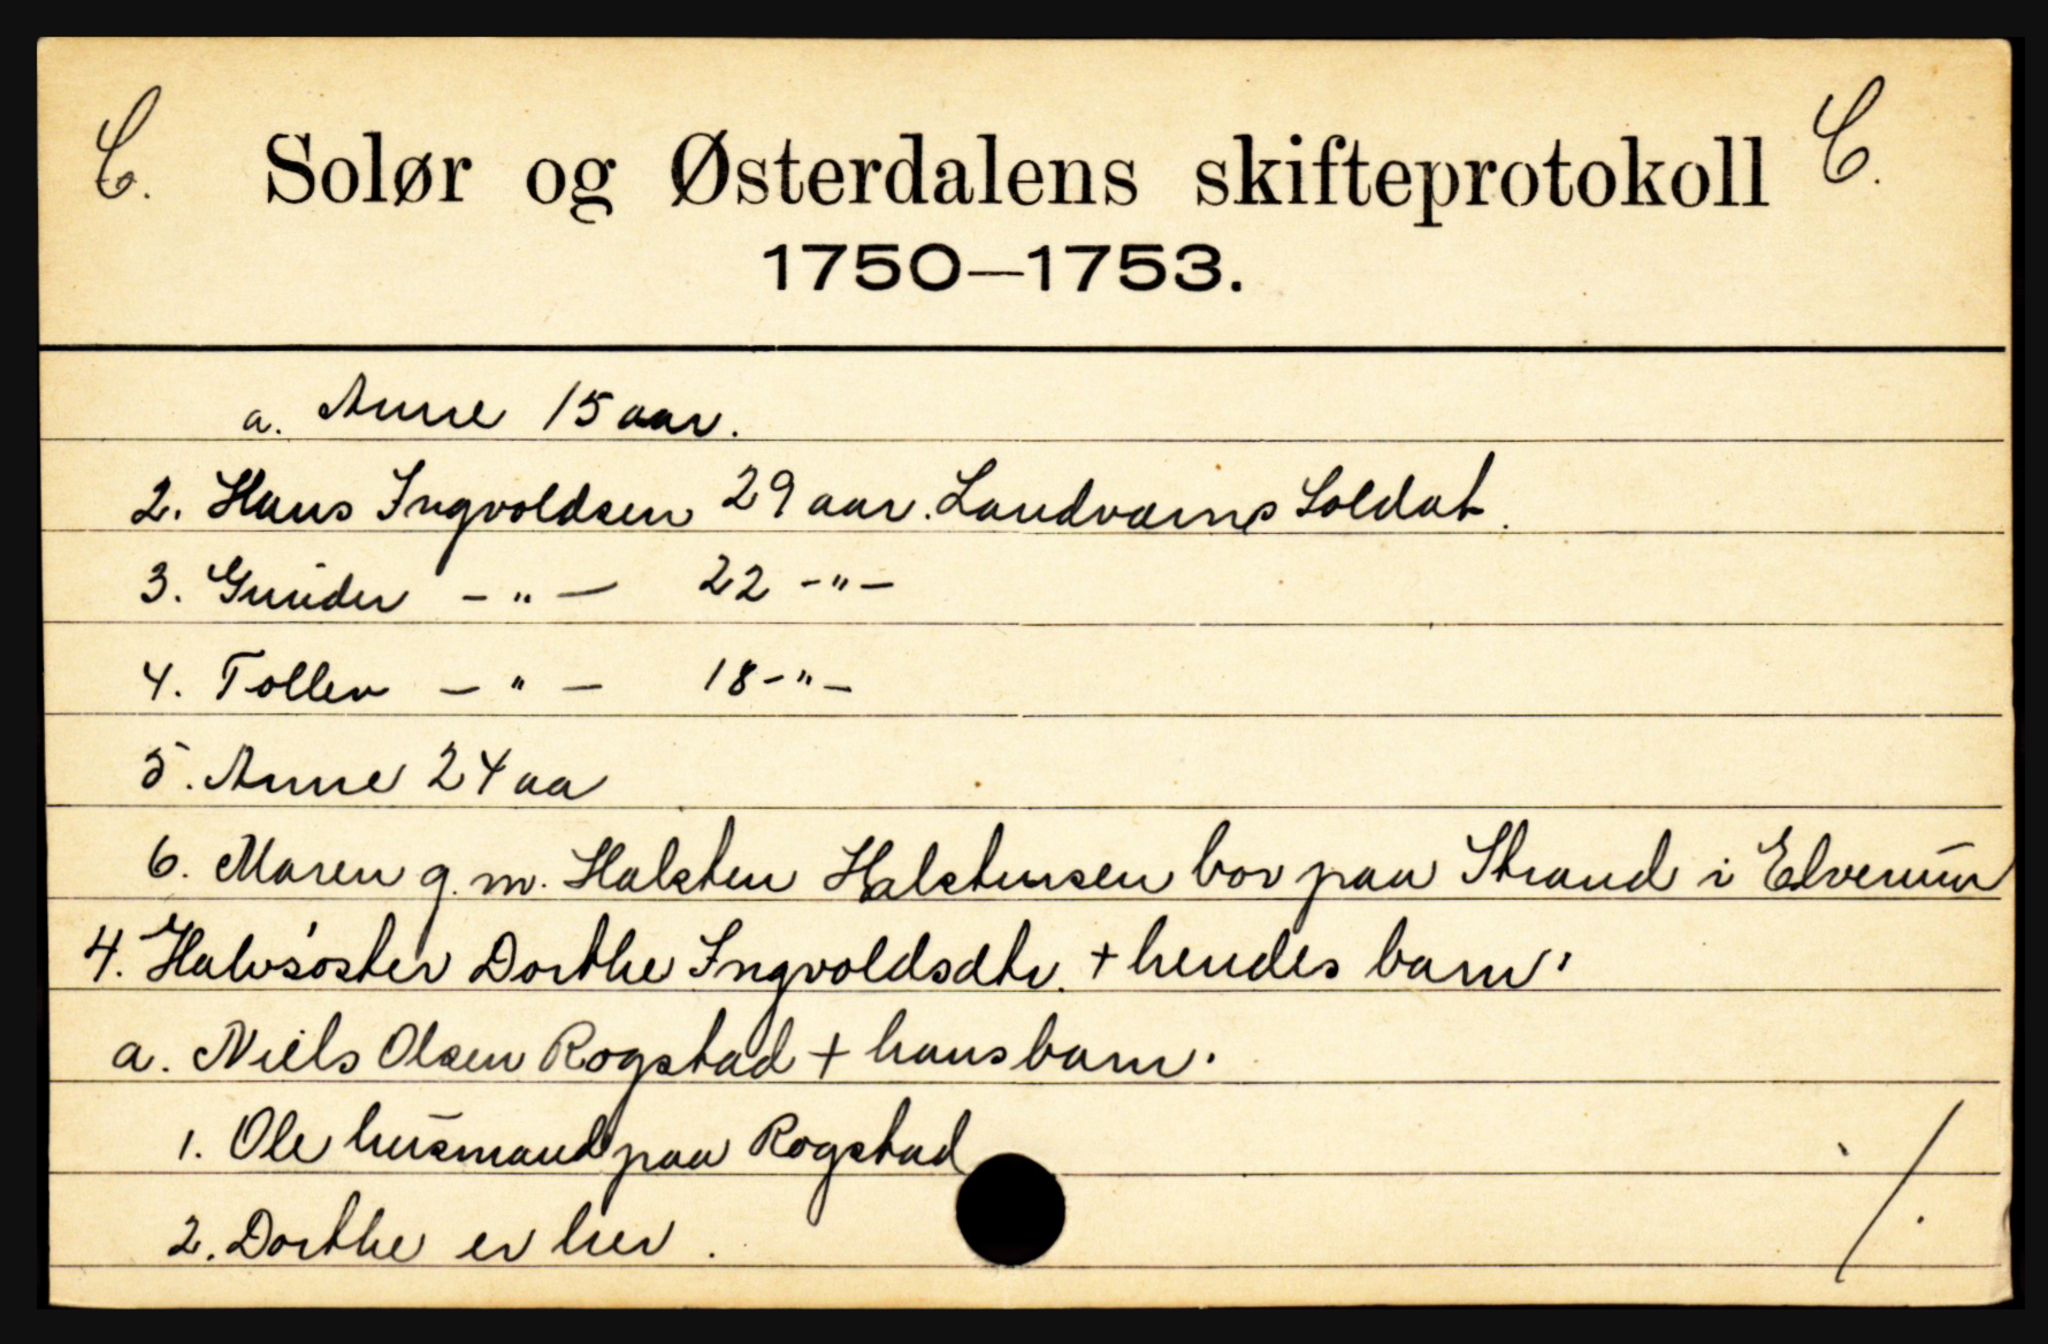 C. Solør og Østerdalens skifteprotokoll C.
1750—1753.
a. Anne 15 aar.
2. Hans Ingvoldsen 29 aar. Landværns Soldat.
3. Gunder - " - 22 - " -
4. Tollev - " - 18 - " -
5. Anne 24 aa
6. Maren g. m. Halsten Halstensen bor paa Strand i Elverum
4. Halvsøster Dorthe Ingvoldsdtr. + hendes barn:
a. Niels Olsen Rogstad + hans barn.
1. Ole husmand paa Rogstad
2. Dorthe er her. ·/.